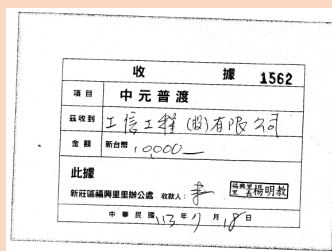 收據 1562
項目 中元普渡
茲收到 工信工程(股)有限公司
金額 新台幣 10,000—
此據
新莊區福興里里辦公處 收款人: 福興里里長 楊明教
中華民國 113年 月 18日